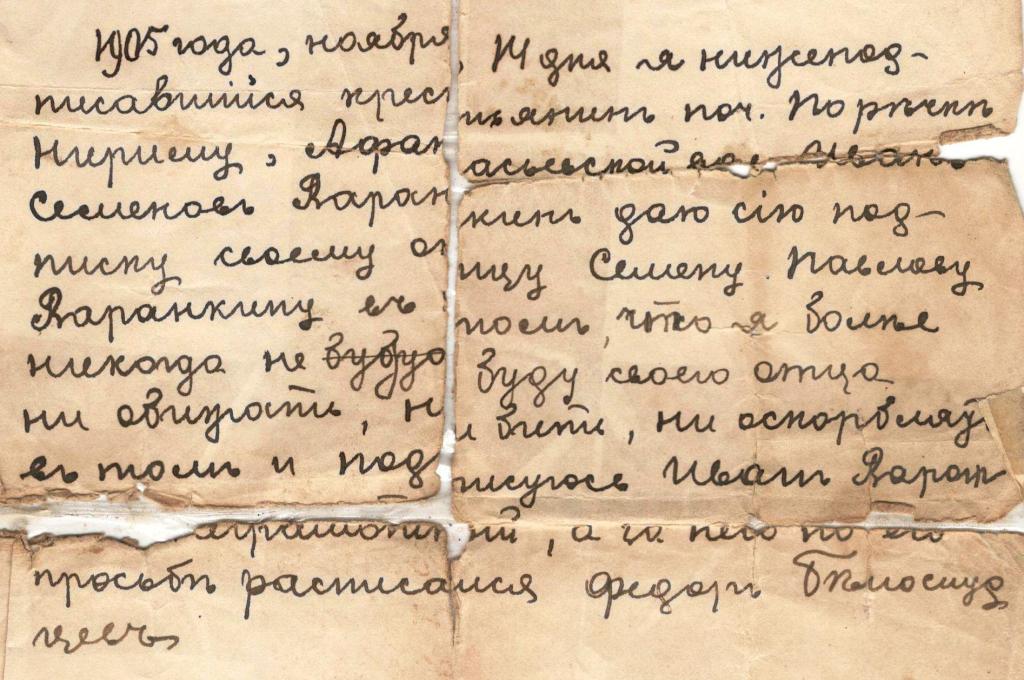 1905 года, ноября, 14 дня я нижепод-
писавшійся крестьянинъ поч. Порѣчкѣ
Афанасьевской вол. Иванъ
Семеновъ Варанкинъ даю сію под-
писку своему отцу Семену Павлову
Варанкину въ томъ, что я болѣе
никогда не буду своего отца
ни обижать, ни бить, ни оскорблять
въ томъ и подписуюсь Иванъ Варан
неграмотный, а за него по его
просьбѣ расписался Федоръ